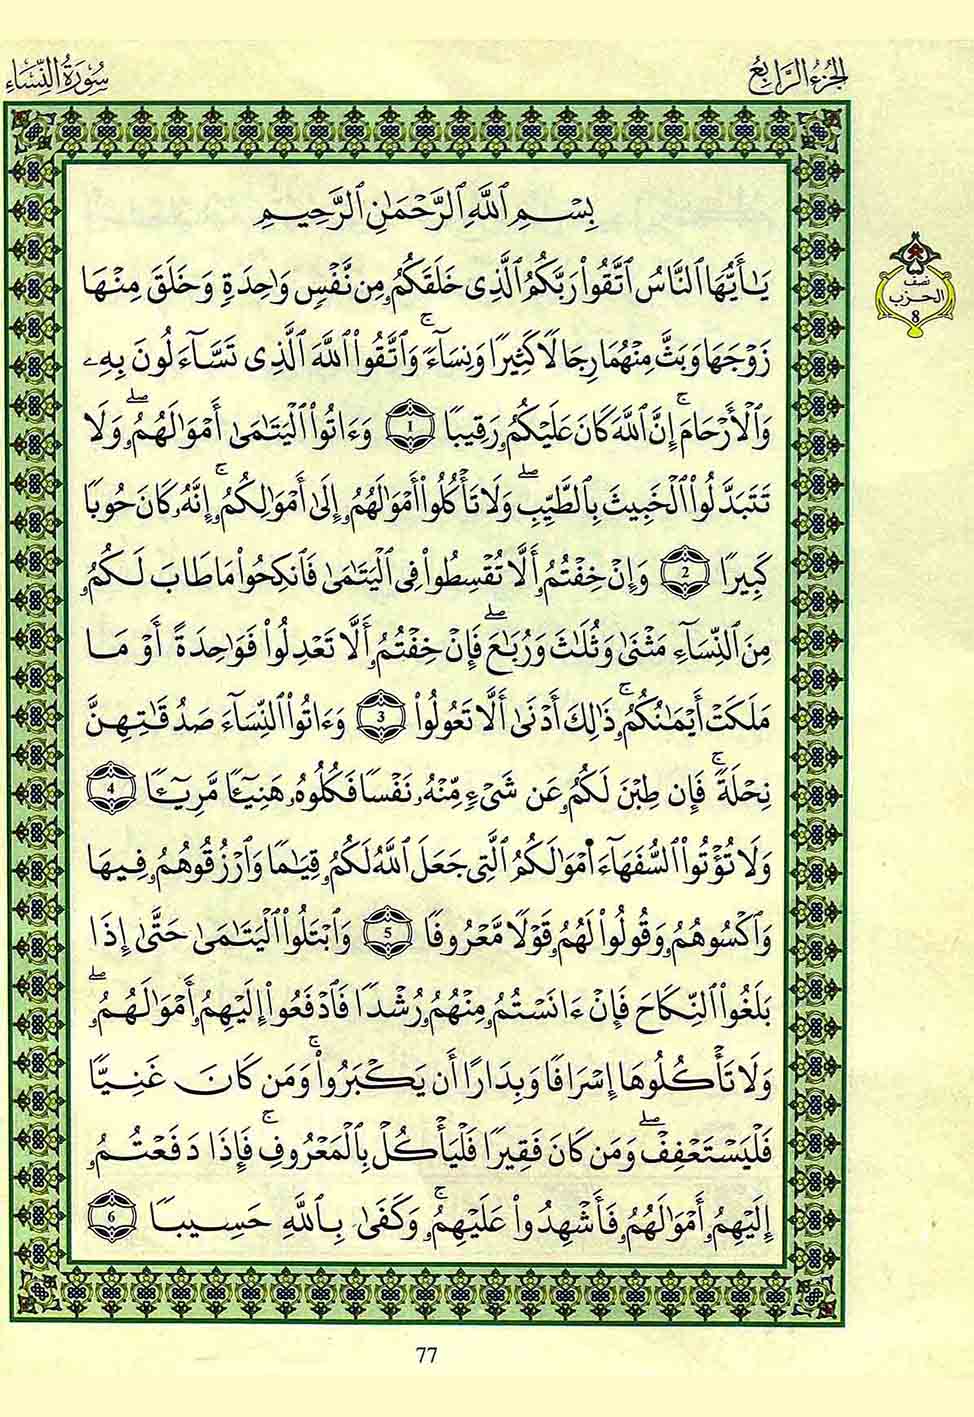 الجزء الرابع
سورة النساء
بِسْمِ ٱللَّهِ ٱلرَّحْمَٰنِ ٱلرَّحِيمِ
يَٰٓأَيُّهَا ٱلنَّاسُ ٱتَّقُواْ رَبَّكُمُ ٱلَّذِى خَلَقَكُمُۥ مِن نَّفْسٍ وَٰحِدَةٍ وَخَلَقَ مِنْهَا
نصف
الحزب
8
زَوْجَهَا وَبَثَّ مِنْهُمَا رِجَالًا كَثِيرًا وَنِسَآءً ۚ وَٱتَّقُواْ ٱللَّهَ ٱلَّذِى تَسَّآءَلُونَ بِهِۦ
وَٱلْأَرْحَامَ ۚ إِنَّ ٱللَّهَ كَانَ عَلَيْكُمُۥ رَقِيبًا 1 وَءَاتُواْ ٱلْيَتَٰمَىٰٓ أَمْوَٰلَهُمُۥ ۖ وَلَا
تَتَبَدَّلُواْ ٱلْخَبِيثَ بِٱلطَّيِّبِ ۖ وَلَا تَأْكُلُوٓاْ أَمْوَٰلَهُمُۥٓ إِلَىٰٓ أَمْوَٰلِكُمُۥٓ ۚ إِنَّهُۥ كَانَ حُوبًا
كَبِيرًا 2 وَإِنْ خِفْتُمُۥٓ أَلَّا تُقْسِطُواْ فِى ٱلْيَتَٰمَىٰ فَٱنكِحُواْ مَا طَابَ لَكُمُۥ
مِنَ ٱلنِّسَآءِ مَثْنَىٰ وَثُلَٰثَ وَرُبَٰعَ ۖ فَإِنْ خِفْتُمُۥٓ أَلَّا تَعْدِلُواْ فَوَٰحِدَةً أَوْ مَا
مَلَكَتْ أَيْمَٰنُكُمُۥ ۚ ذَٰلِكَ أَدْنَىٰٓ أَلَّا تَعُولُواْ 3 وَءَاتُواْ ٱلنِّسَآءَ صَدُقَٰتِهِنَّ
نِحْلَةً ۚ فَإِن طِبْنَ لَكُمُۥ عَن شَىْءٍ مِّنْهُۥ نَفْسًا فَكُلُوهُۥ هَنِيٓـًٔا مَّرِيٓـًٔا 4
وَلَا تُؤْتُواْ ٱلسُّفَهَآءَ أَمْوَٰلَكُمُ ٱلَّتِى جَعَلَ ٱللَّهُ لَكُمُۥ قِيَٰمًا وَٱرْزُقُوهُمُۥ فِيهَا
وَٱكْسُوهُمُۥ وَقُولُواْ لَهُمُۥ قَوْلًا مَّعْرُوفًا 5 وَٱبْتَلُواْ ٱلْيَتَٰمَىٰ حَتَّىٰٓ إِذَا
بَلَغُواْ ٱلنِّكَاحَ فَإِنْ ءَانَسْتُمُۥ مِنْهُمُۥ رُشْدًا فَٱدْفَعُوٓاْ إِلَيْهِمُۥٓ أَمْوَٰلَهُمُۥ ۖ
وَلَا تَأْكُلُوهَآ إِسْرَافًا وَبِدَارًا أَن يَكْبَرُواْ ۚ وَمَن كَانَ غَنِيًّا
فَلْيَسْتَعْفِفْ ۖ وَمَن كَانَ فَقِيرًا فَلْيَأْكُلْ بِٱلْمَعْرُوفِ ۚ فَإِذَا دَفَعْتُمُۥٓ
إِلَيْهِمُۥٓ أَمْوَٰلَهُمُۥ فَأَشْهِدُواْ عَلَيْهِمُۥ ۚ وَكَفَىٰ بِٱللَّهِ حَسِيبًا 6
77